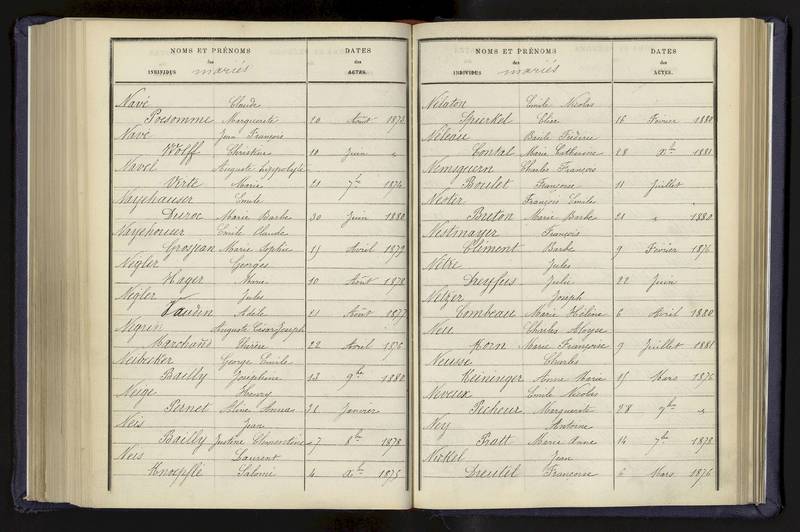 NOMS ET PRÉNOMS DATES
des des
INDIVIDUS mariés ACTES.
Navé Claude
Poesomme Marguerite 10 Août 1872
Nave Jean François
Wolff Christine 10 Juin "
Navel Auguste hyppolyte
Virte Marie 21 7bre 1874
Nayshauser Emile
Duroc Marie Barbe 30 Juin 1880
Nayshouser Emile Claude
Grosjean Marie Sophie 19 Avril 1879
Negler Georges
Hager Anne 10 Août 1878
Negler Jules
Adèle 21 Août 1877
Negrin Auguste César Joseph
Marchand Thérèse 22 Avril 1876
Neibecker George Emile
Bailly Joséphine 23 9bre 1880
Neige Henry
Pernet Aline Anna Janvier
Neis Jean
Bailly Justine Clementine 7 8bre 1878
Neis Laurent
Knoepflé Salomé 4 Xbre 1875
NOMS ET PRÉNOMS DATES
des des
INDIVIDUS mariés ACTES.
Nélaton Emile Nicolas
Spurkel Elise 16 Février 1880
Néleau Basile Frédéric
Contal Marie Catherine 28 Xbre 1881
Nemiguern Charles François
Boulet Françoise 11 Juillet "
Nestir François Emile
Breton Marie Barbe 21 " 1880
Nestmayer François
Clément Barbe 9 Février 1876
Jules
Dreyfus Julie 22 Juin
Netzer Joseph
Tombeau Marie Hélène 6 Avril 1880
Neu Charles Aloyse
Korn Marie Françoise 9 Juillet 1881
Neusse Charles
Keininger Anne Marie 15 Mars 1876
Neveux Emile Nicolas
Pecheur Marguerite 28 9bre "
Ney Antoine
Pratt Marie Anne 14 7bre 1878
Nickel Jean
Dreutel Françoise 6 Mars 1876